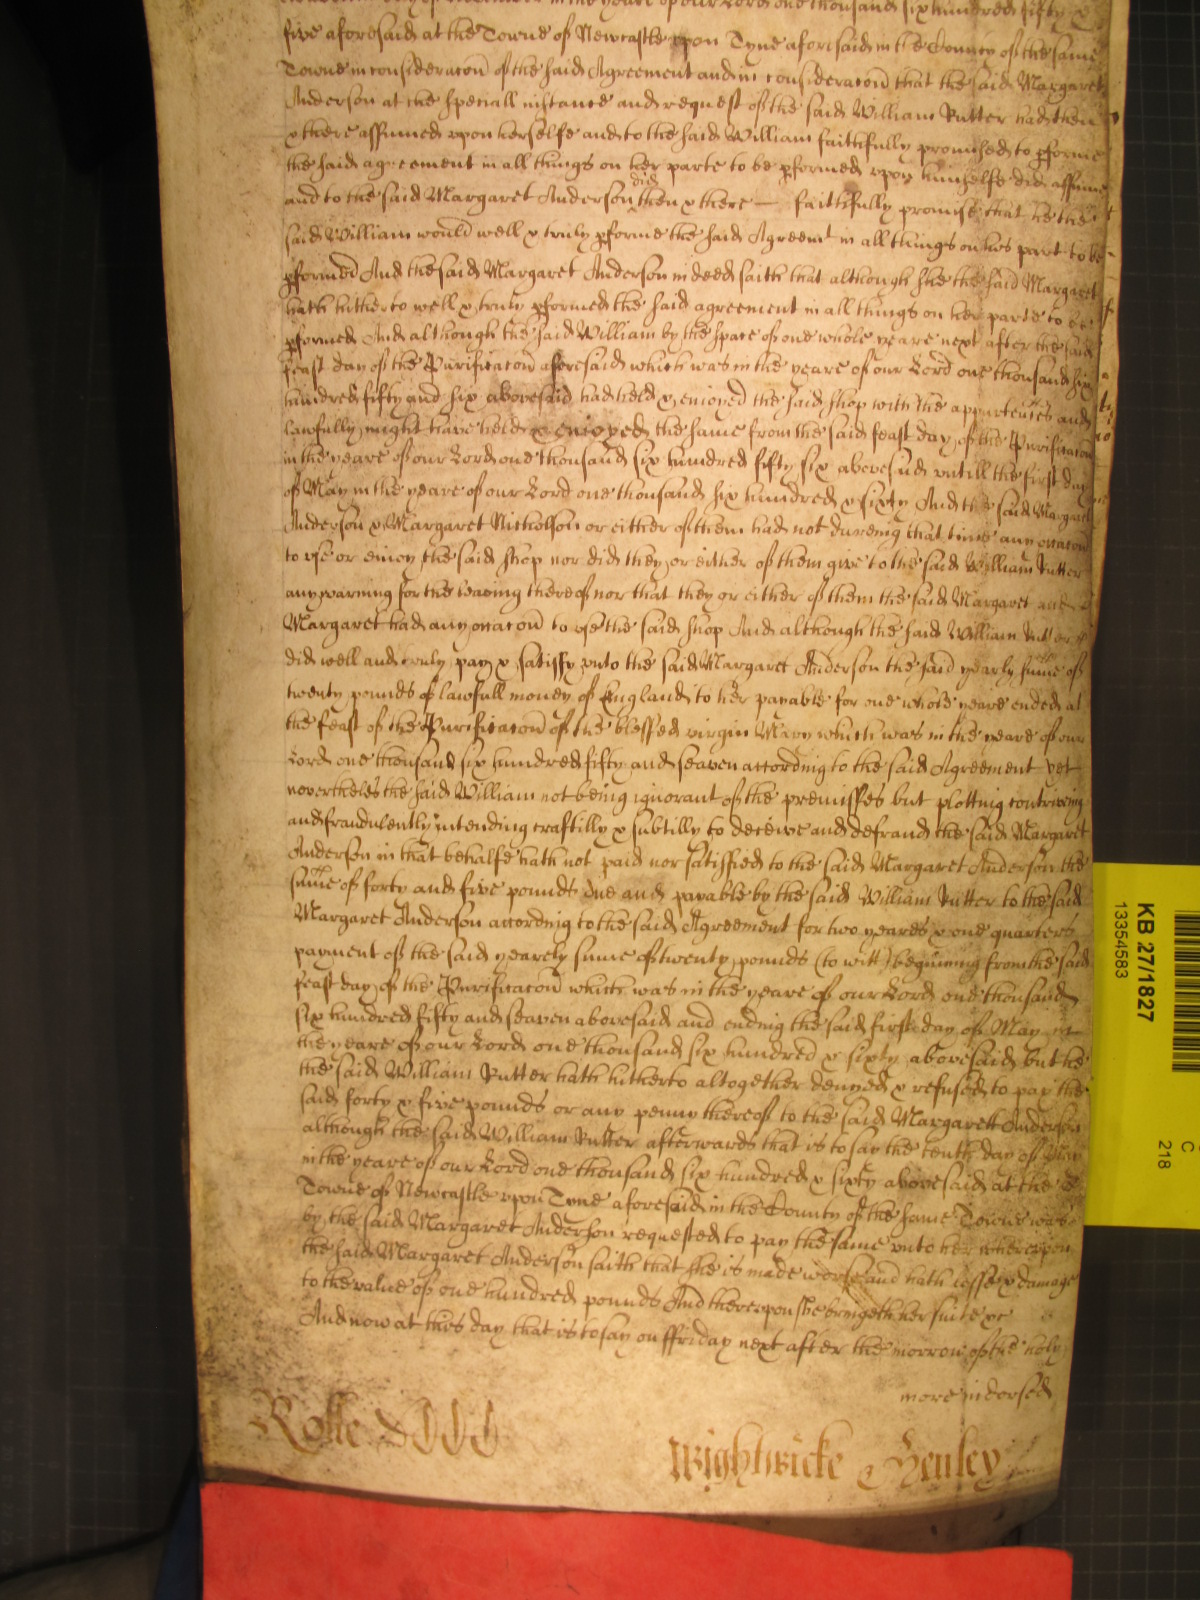 in the yeare of our Lord one thousand six hundred fifty &
five aforesaid at the Towne of Newcastle vpon Tyne aforesaid in the County of the same
Towne in consideracon of the said Agreement and in consideracon that the said Margaret
Anderson at the speciall instance and request of the said William Rutter had then
& there assumed vpon herselfe and to the said William faithfully promised to pforme
the said agreement in all things on her parte to be pformed vpon himselfe did assume
and to the said Margaret Anderson did then & there — faithfully promise that he the
said William would well & truly pforme the said Agreemt in all things on his part to be
pformed And the said Margaret Anderson in deed saith that although she the said Margaret
hath hitherto well & truly pformed the said agreement in all things on her parte to be
pformed And although the said William by the space of one whole yeare next after the said
feast day of the Purificacon aforesaid which was in the yeare of our Lord one thousand six
hundred fifty and six abovesaid had held & enioyed the said shop with the appurtences and
lawfully might have held & enioyed the same from the said feast day of the Purificacon
in the yeare of our Lord one thousand six hundred fifty six abovesaid vntill the first day
of May in the yeare of our Lord one thousand six hundred & sixty And the said Margaret
Anderson & Margaret Nicholson or either of them had not dureing that time any occacon
to vse or enioy the said shop nor did they or either of them give to the said William Rutter
any warning for the leaving thereof nor that they or either of them the said Margaret and
Margaret had any occacon to vse the said shop And although the said William Rutter
did well and truly pay & satisfy vnto the said Margaret Anderson the said yearly sume of
twenty pounds of lawfull money of England to her payable for one whole yeare ended at
the feast of the Purificacon of the blessed virgin Mary which was in the yeare of our
Lord one thousand six hundred fifty and seaven according to the said Agreement yet
nevertheles the said William not being ignorant of the premisses but plotting contriveing
and fraudulently intending craftilly & subtilly to deceive and defraud the said Margaret
Anderson in that behalfe hath not paid nor satisfied to the said Margaret Anderson the
sume of forty and five pounds due and payable by the said William Rutter to the said
Margaret Anderson according to the said Agreement for two yeares & one quarters
payment of the said yearely sume of twenty pounds (to witt) beginning from the said
feast day of the Purificacon which was in the yeare of our Lord one thousand
six hundred fifty and seaven abovesaid and ending the said first day of May in
the yeare of our Lord one thousand six hundred & sixty abovesaid but the
the said William Rutter hath hitherto altogether denyed & refused to pay the
said forty & five pounds or any penny thereof to the said Margarett Anderson
although the said William Rutter afterwards that is to say the tenth day of May
in the yeare of our Lord one thousand six hundred & sixty abovesaid at the
Towne of Newcastle vpon Tyne aforesaid in the County of the same Towne was
by the said Margaret Anderson requested to pay the same vnto her wherevpon
the said Margaret Anderson saith that she is made worse and hath losse & damage
to the value of one hundred pounds And therevpon she bringeth her suite &c
And now at this day that is to say on ffriday next after the morrow of the holy
more indorsed
Rolle
Wightwicke & Henley
KB 27/1827
13354583
C
218